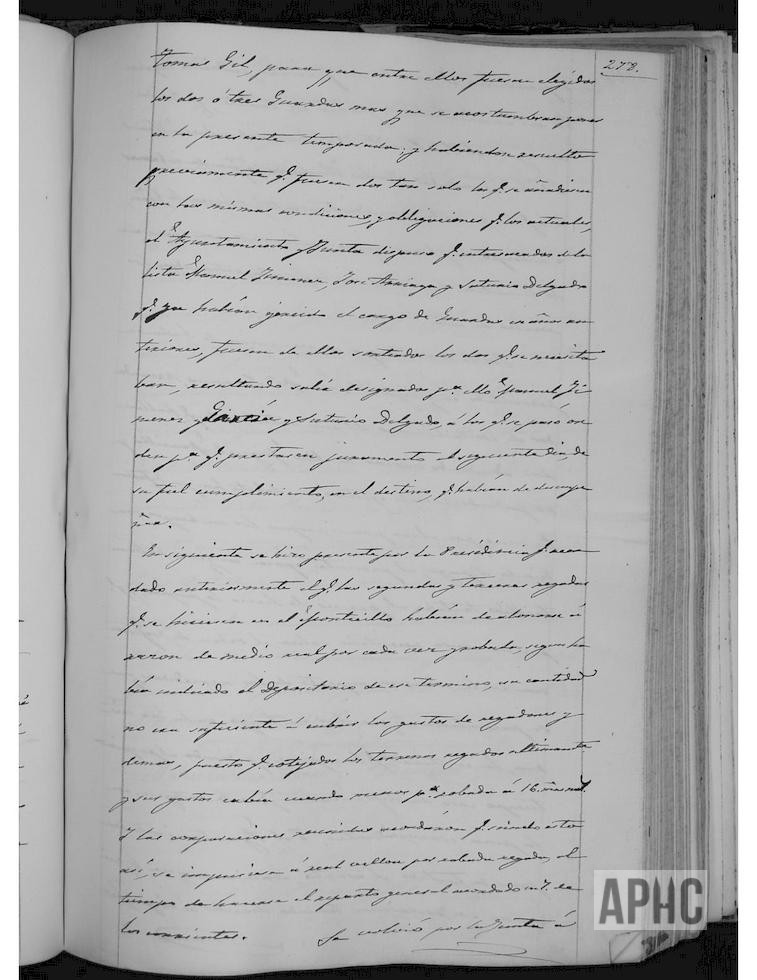 278.
Tomas Gil, para que entre ellos fuesen elegidos
los dos ó tres Guardas mas que se acostumbran poner
en la presente temporada; y habiendose resuelto
precisamente q.e fuesen dos tan solo los q.e se añadiesen
con las mismas condiciones y obligaciones q.e los actuales,
el Ayuntamiento y Junta dispuso q.e entresacados de la
lista Manuel Jimenez, Jose Arriaga y Saturio Delgado
q.e ya habian ejercido el cargo de Guardas en años an
teriores, fuesen de ellos sorteados los dos q.e se necesita
ban, resultando salir designados p.a ello Manuel Ji
menez y Saturio Delgado, á los q.e se pasó or
den p.a q.e prestasen juramento el siguiente dia, de
su fiel cumplimiento, en el destino, q.e habian de desempe
ñar.
En siguiente se hizo presente por la Presidencia q.e acor
dado anteriormente el q.e las segundas y terceras regadas
q.e se hiciesen en el Ponticillo habian de abonarse á
razon de medio real por cada vez y robada, segun ha
bia indicado el Depositario de ese termino, esa cantidad
no era suficiente á cubrir los gastos de regadores y
demas, puesto q.e cotejados los terrenos regados ultimamente
y sus gastos cabia cuando menos p.r robada á 16
Y las corporaciones reunidas acordaron q.e siendo esto
así, se impusiese á real vellon por robada regada, al
tiempo de hacerse el reparto general acordado en 7. de
los corrientes.
Se volvió por la Junta á
APHC